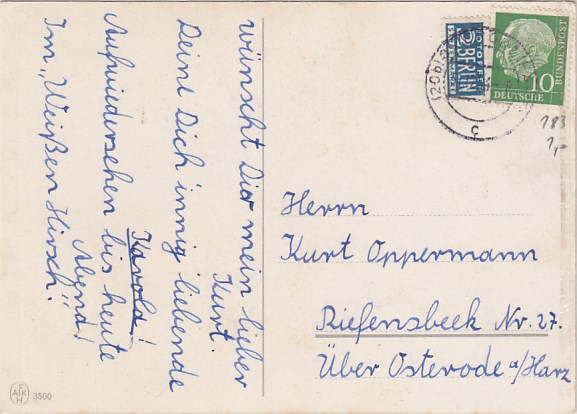 wünscht Dir mein lieber
Kurt.
Deine Dich innig liebende
Karola!
Aufwiedersehen bis heute
Abend!
Im „Weißen Hirsch".
NOTOPFER
2 BERLIN
STEUERMARKE
DEUTSCHE
BUNDESPOST
10
c
183
1,-
Herrn
Kurt Oppermann
Riefensbeek Nr. 27.
Über Osterode a/Harz
FAKH 3500